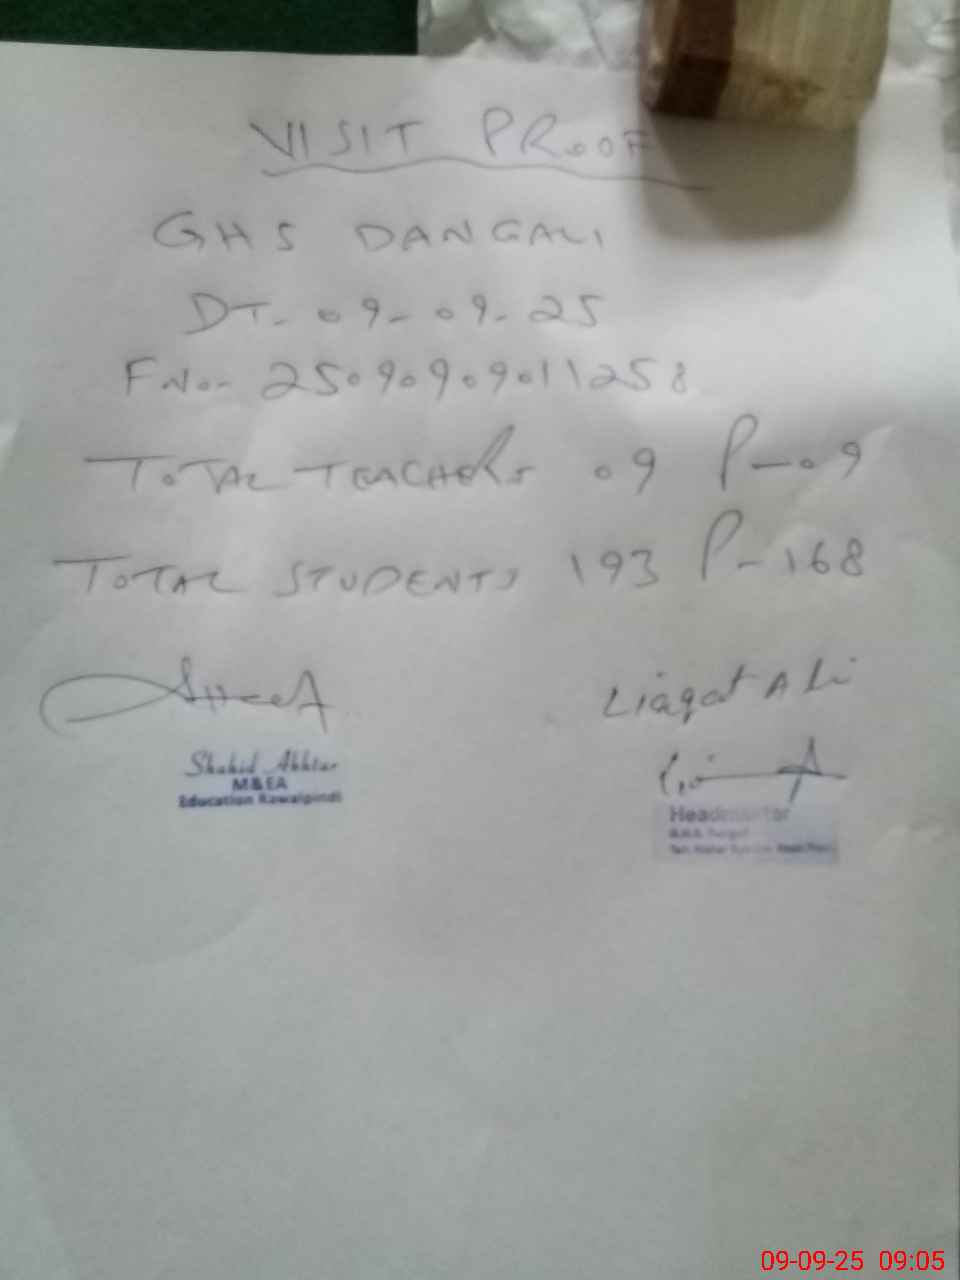 VISIT PROOF
GHS DANGALI
DT- 09-09-25
F No- 25090909011258
TOTAL TEACHERS 09 P-09
TOTAL STUDENTS 193 P-168
Liaqat Ali
Shahid Akhtar
M&EA
Education Rawalpindi
Headmaster
09-09-25 09:05